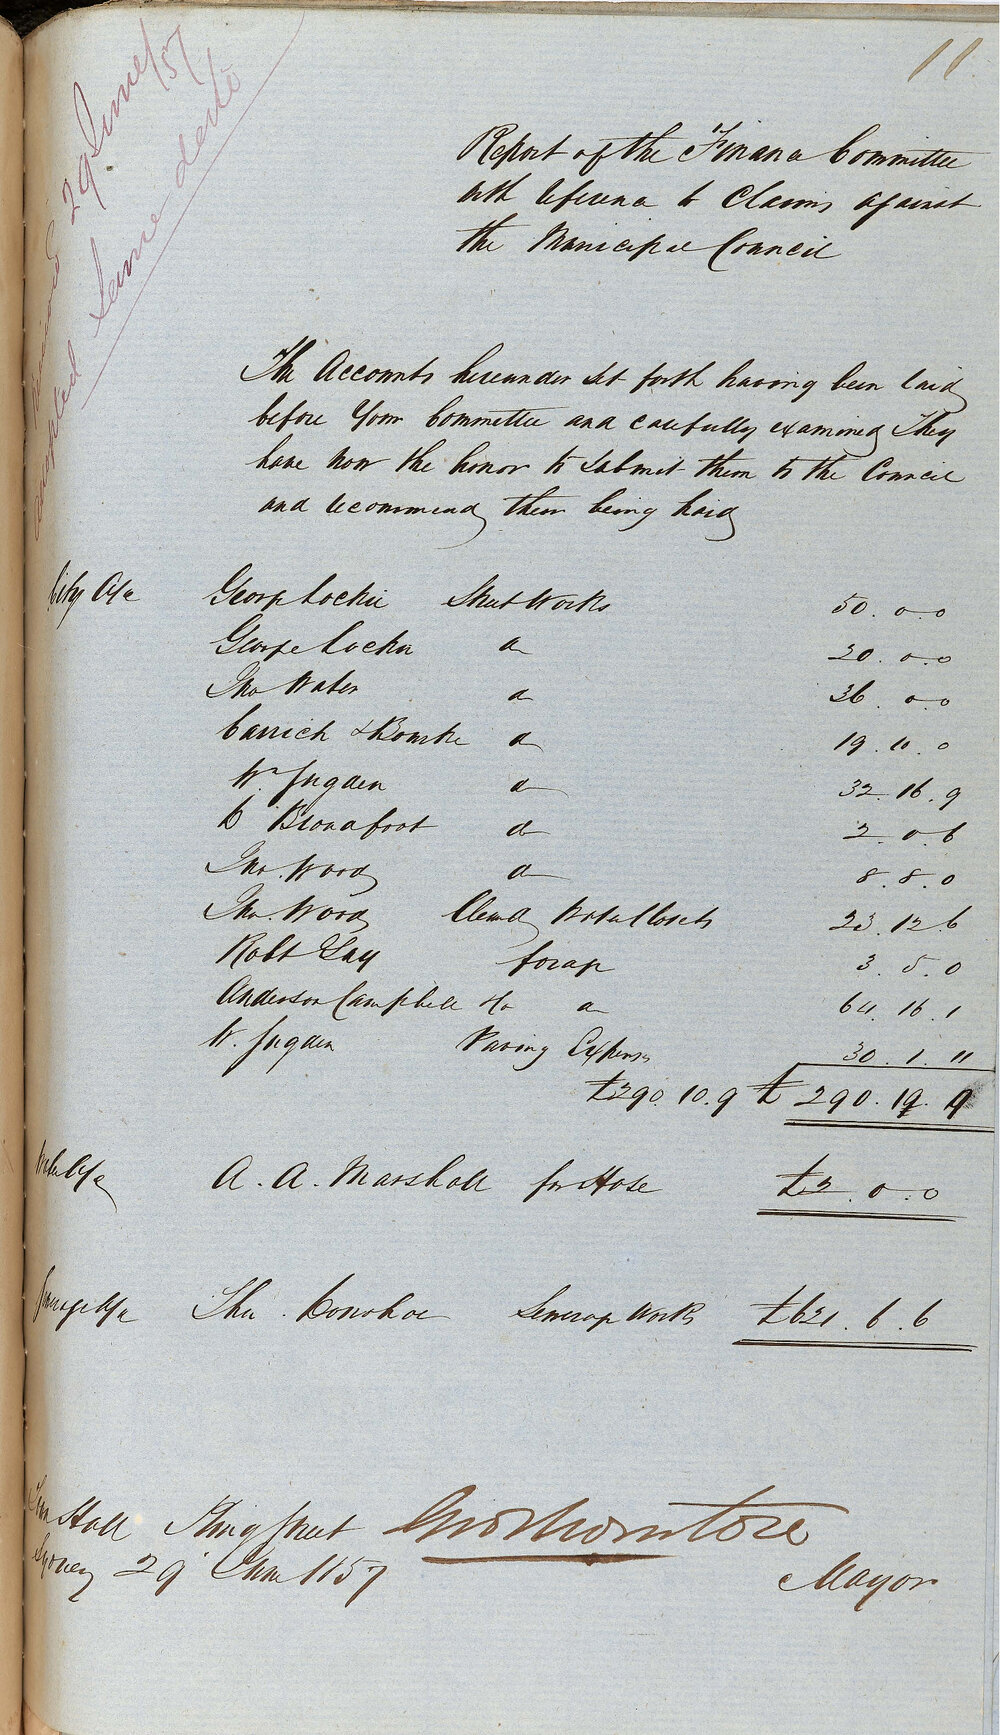 11
29 June/57
adopted Same date
Report of the Finance Committee
with reference to Claims against
the Municipal Council
The Accounts hereunder set forth having been laid
before Your Committee and carefully examined They
have now the honor to submit them to the Council
and recommend their being paid
City A/c George Lockie Street Works 50. 0. 0
George Lockie do 20. 0. 0
Thos Water do 36. 0. 0
Carrick & Bourke do 19. 10. 0
Wm Jugden do 32. 16. 9
D Broadfoot do 2. 0. 6
Thos. Wood do 8. 8. 0
Thos. Wood Cleang Water Closets 23. 12. 6
Robt Gay forage 3. 5. 0
Anderson Campbell & Co do 64. 16. 1
W. Jugden Paving Expenses 30. 1. 11
£290. 10. 9 £ 290. 19. 9
Water A/c A. A. Marshall for Hose £2. 0. 0
Sewerage A/c Thos. Donohoe Sewerage Works £621. 6. 6
Town Hall King Street
Sydney 29 June 1857
Mayor